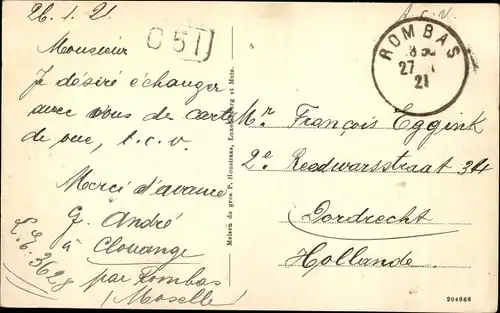 26.1.21.
Monsieur
Je désiré échanger
avec vous de carte
de vue, t.c.v.
Merci d'avance
G. André
à Clouange
par Rombas
(Moselle)
L.E. 3628
C51
Maison de gros P. Houstraas, Luxembourg et Metz.
A.C.V.
ROMBAS
27
21
Mr. François Eggink
2e Reedwarsstraat 34
Dordrecht
Hollande.
204866